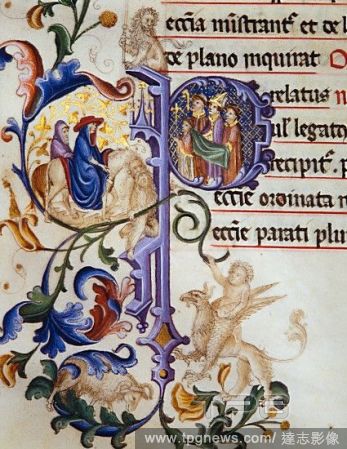 ecc̄ia mīstrant᷑ et de l
de plano inquirat O
relatus n
ul legatu
recipit᷑. p
eccīe ordinata n
eccīe parati plur
www.tpgnews.com/ 達志影像